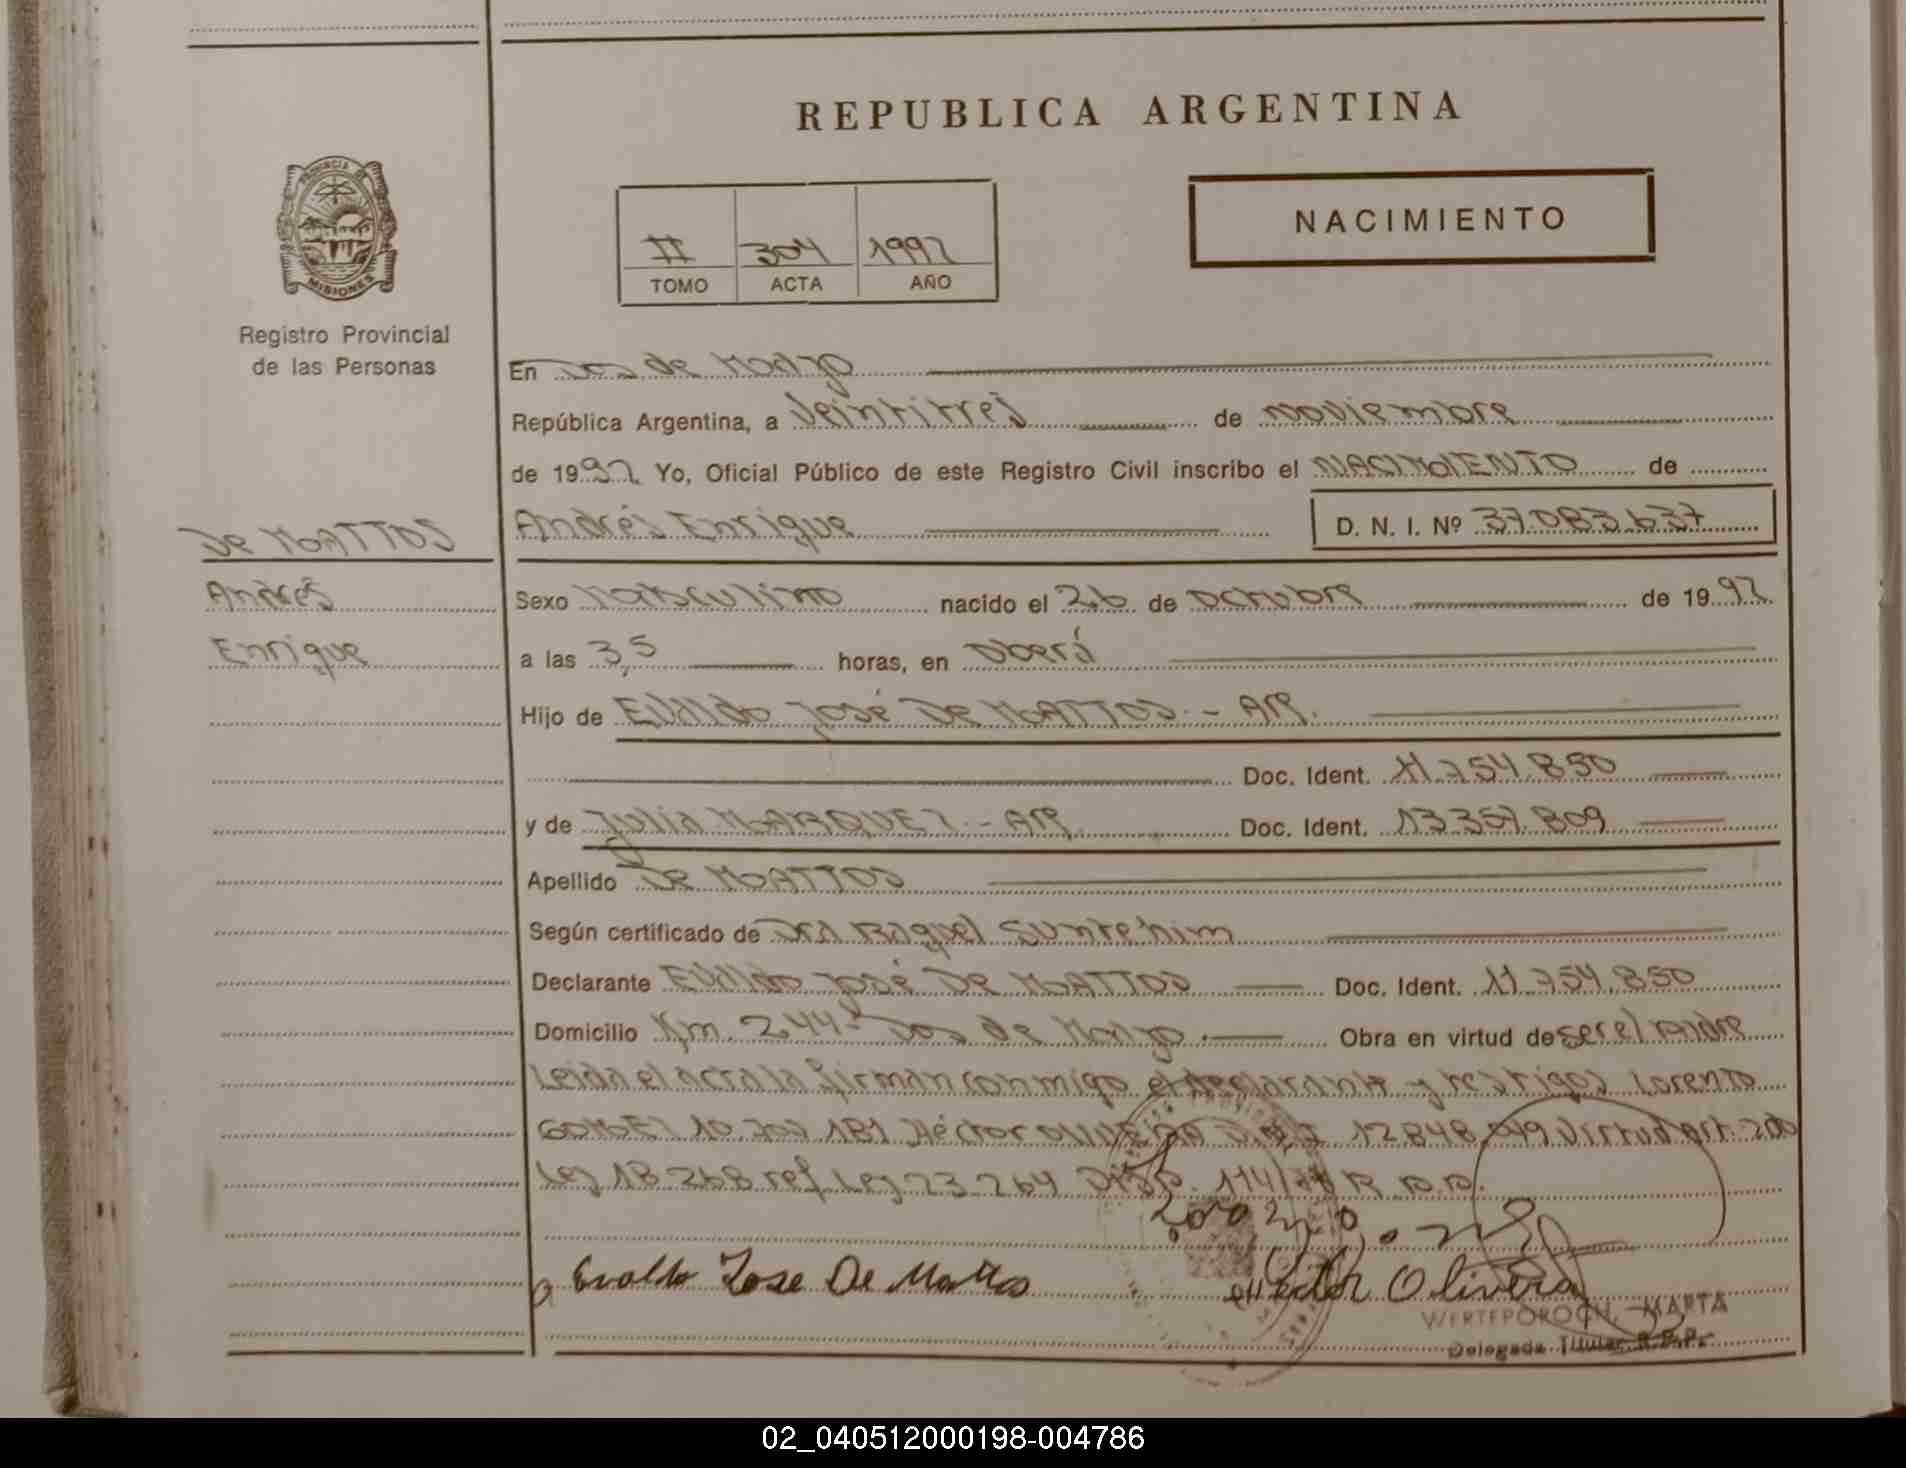 REPUBLICA ARGENTINA
PROVINCIA DE
MISIONES
Registro Provincial
de las Personas
II 304 1992
TOMO ACTA AÑO
NACIMIENTO
En Dos de Mayo
República Argentina, a Veintitres de noviembre
de 1992 Yo, Oficial Público de este Registro Civil inscribo el NACIMIENTO de
Andrés Enrique D. N. I. Nº 37.083.637
De MATTOS
Andrés
Enrique
Sexo Masculino nacido el 26 de octubre de 1992
a las 3,5 horas, en Oberá
Hijo de Evaldo José De MATTOS - Arg.
Doc. Ident. 11.754.850
y de Julia MARQUEZ - Arg Doc. Ident. 13.357.809
Apellido De MATTOS
Según certificado de Dra Raquel
Declarante Evaldo José De MATTOS Doc. Ident. 11.754.850
Domicilio Km. 244 - Dos de Mayo Obra en virtud de ser el padre
Leida el acta la firman conmigo el declarante y testigos Lorento
GOMEZ 10.707.181 Héctor OLIVEIRA D.N.I 12.848.049 Virtud art. 200
Ley 18.268 ref Ley 23.264 Disp. 114/ R.P.P.
Evaldo Jose De Mattos
Hector Olivera
WERTEPOROCH, MARTA
Delegada Titular R.P.P.
02_040512000198-004786